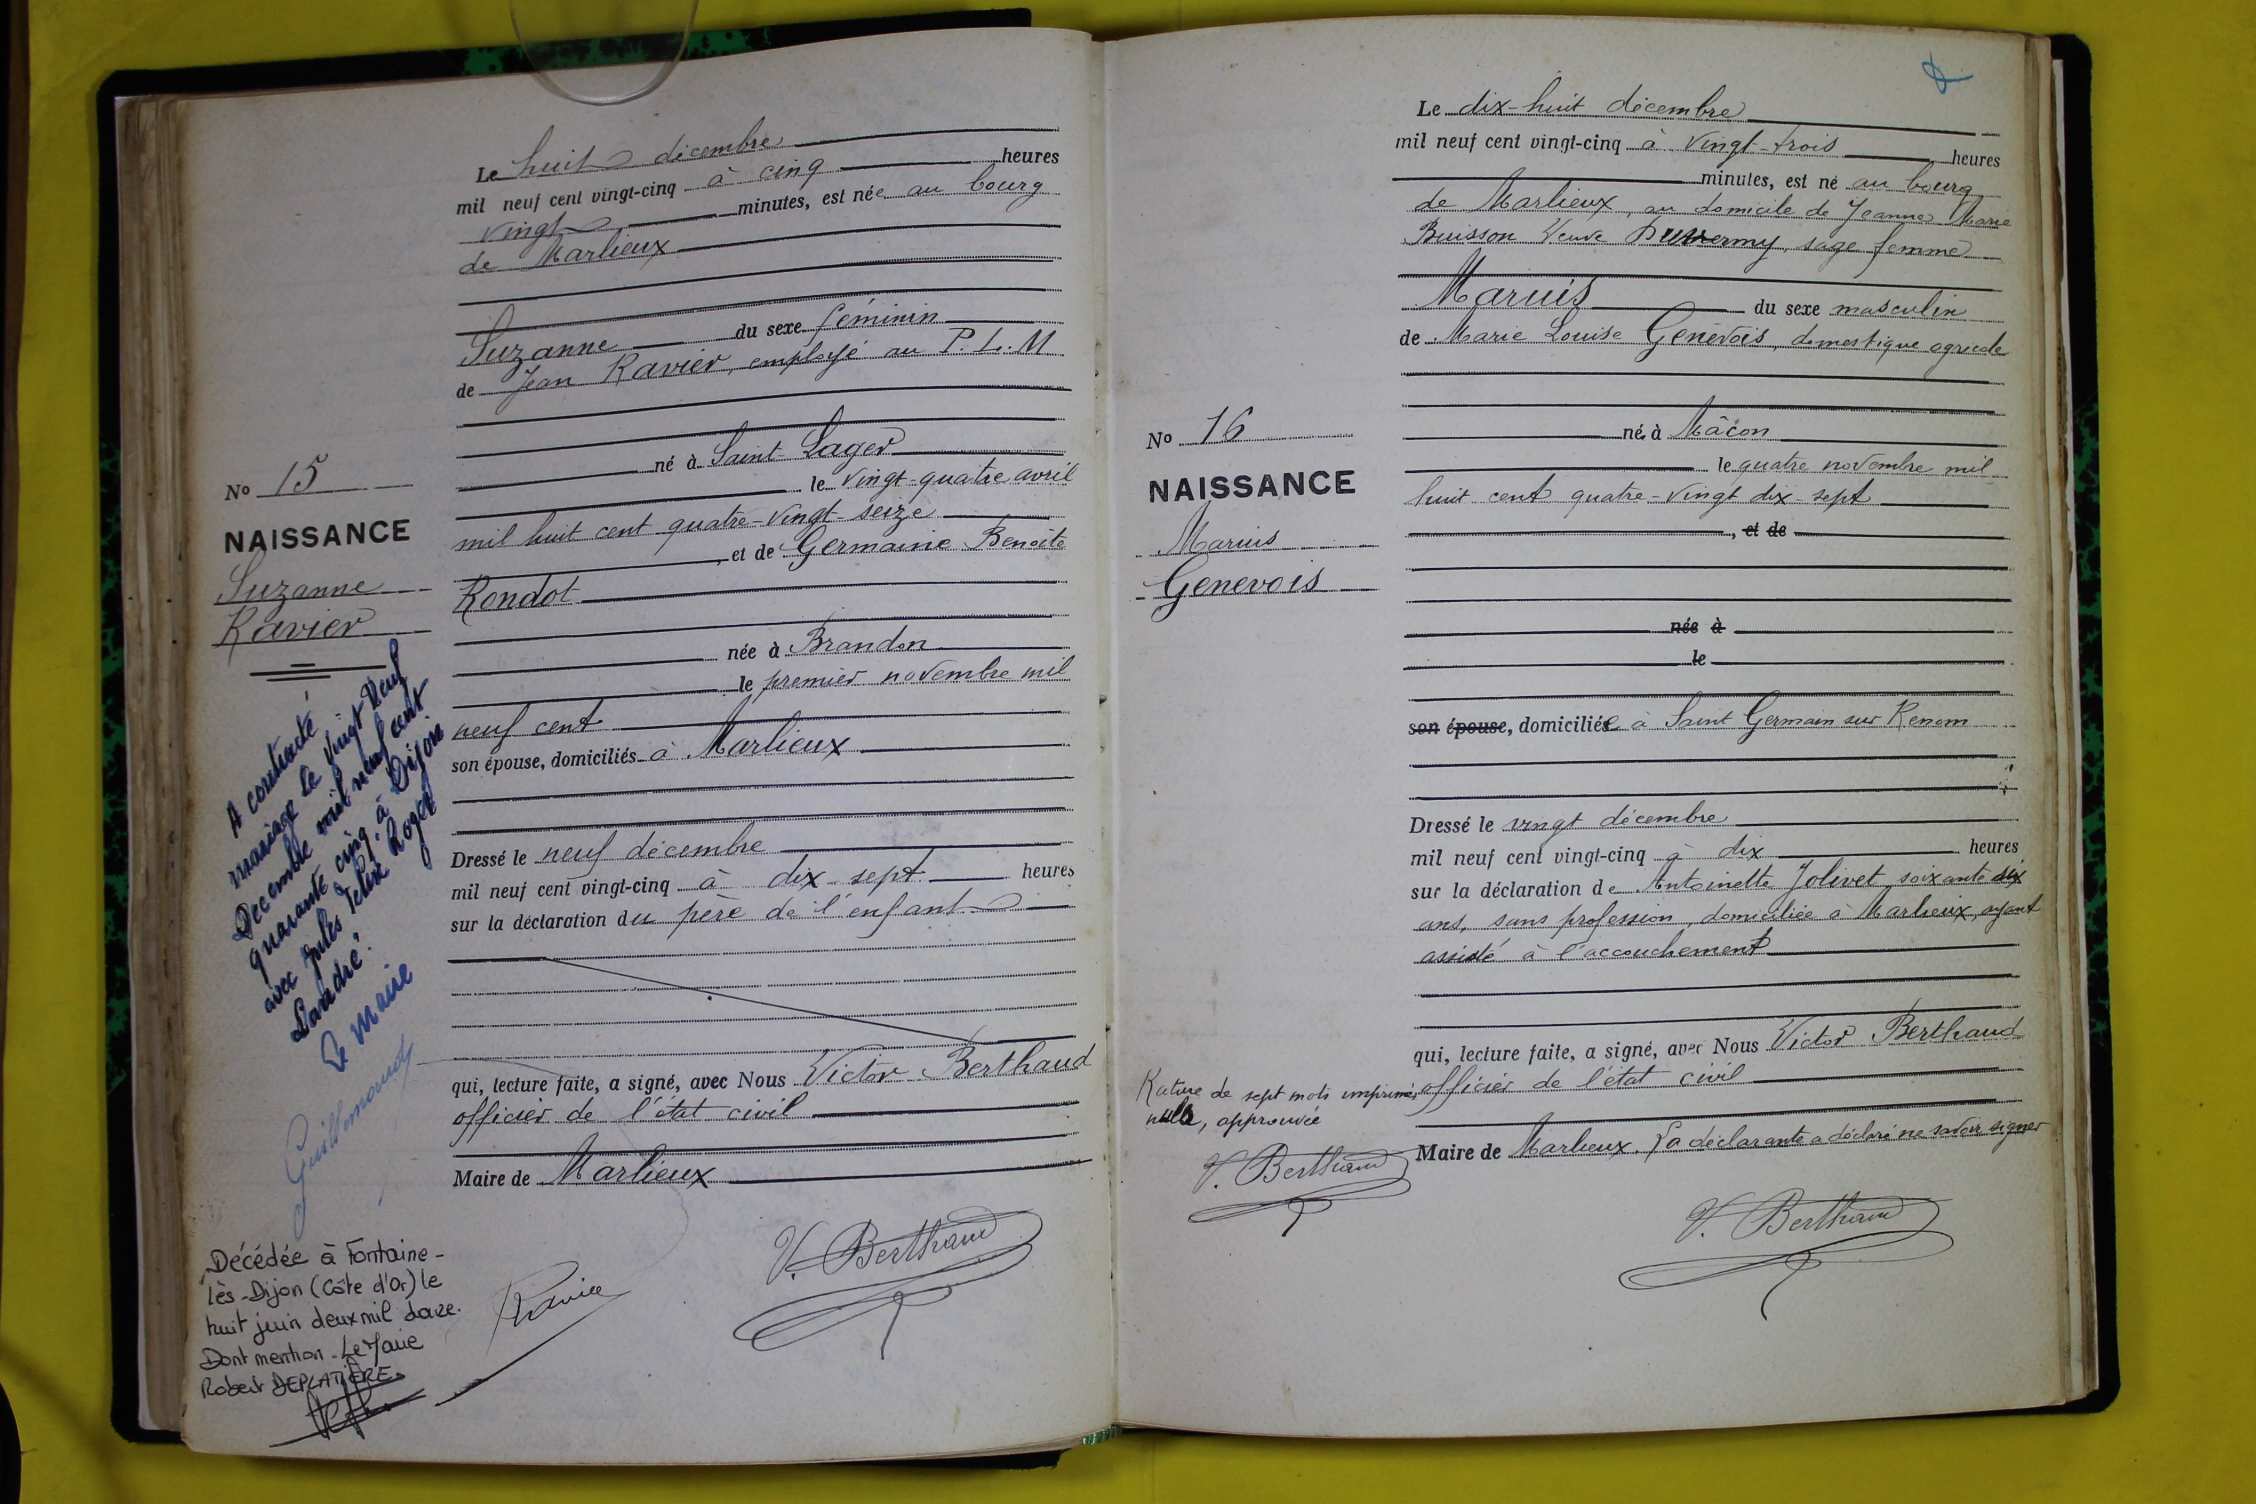 Le huit décembre
mil neuf cent vingt-cinq à cinq heures
vingt minutes, est née au bourg
de Marlieux
Suzanne du sexe féminin
de Jean Ravier, employé au P. L. M
né à Saint-Lager
le vingt-quatre avril
mil huit cent quatre-vingt-seize
, et de Germaine Benoîte
Rondot
née à Brandon
le premier novembre mil
neuf cent
son épouse, domiciliés à Marlieux
Dressé le neuf décembre
mil neuf cent vingt-cinq à dix-sept heures
sur la déclaration du père de l'enfant
qui, lecture faite, a signé, avec Nous Victor Berthaud
officier de l'état civil
Maire de Marlieux
V. Berthaud
Ravier
No 15
NAISSANCE
Suzanne
Ravier
A contracté
mariage le vingt neuf
Décembre mil neuf cent
quarante cinq à Dijon
avec Jules Félix Roger
Landré.
Le Maire
Décédée à Fontaine-
lès-Dijon (Côte d'Or) le
huit juin deux mil douze.
Dont mention - Le Maire
Robert DEPLATIÈRE.
Le dix-huit décembre
mil neuf cent vingt-cinq à vingt-trois heures
minutes, est né au bourg
de Marlieux, au domicile de Jeanne Marie
Buisson Veuve sage femme
Marius du sexe masculin
de Marie Louise Genevois, domestique agricole
né à Mâcon
le quatre novembre mil
huit cent quatre-vingt dix-sept
, et de
née à
le
son épouse, domiciliée à Saint Germain sur Renom
Dressé le vingt décembre
mil neuf cent vingt-cinq à dix heures
sur la déclaration de Antoinette Jolivet, soixante dix
ans, sans profession, domiciliée à Marlieux, ayant
assisté à l'accouchement
qui, lecture faite, a signé, avec Nous Victor Berthaud
officier de l'état civil
Maire de Marlieux. La déclarante a déclaré ne savoir signer
V. Berthaud
No 16
NAISSANCE
Marius
Genevois
Rature de sept mots imprimés
nuls, approuvée
V. Berthaud